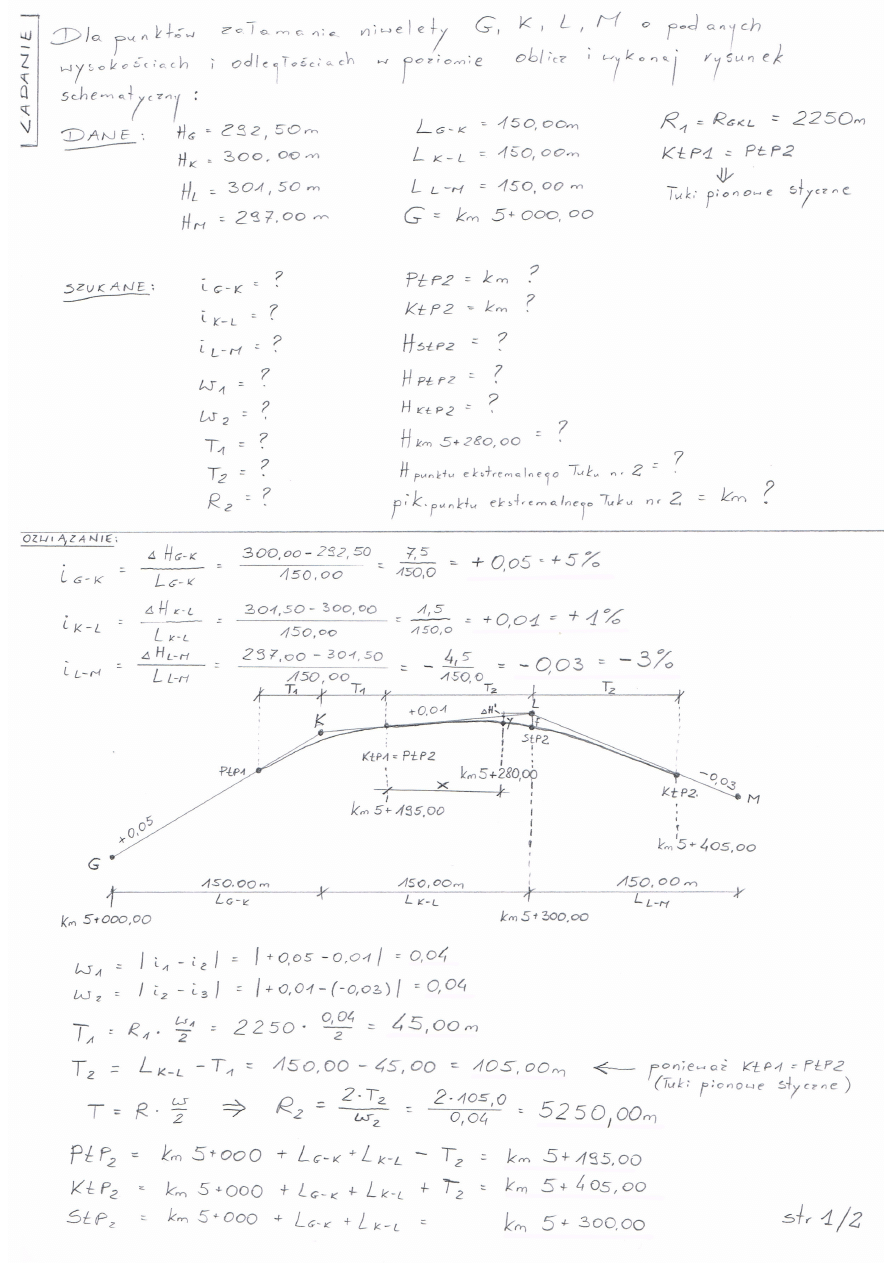 ZADANIE
Dla punktów załamania niwelety G, K, L, M o podanych
wysokościach i odległościach w poziomie oblicz i wykonaj rysunek
schematyczny:
DANE: HG = 292,50m LG-K = 150,00m R1 = RGKL = 2250m
HK = 300.00m LK-L = 150,00m KŁP1 = PŁP2
HL = 301,50m LL-M = 150,00m ⇓
HM = 297.00m G = km 5+000,00 Łuki pionowe styczne
SZUKANE: iG-K = ? PŁP2 = km ?
iK-L = ? KŁP2 = km ?
iL-M = ? HSŁP2 = ?
W1 = ? HPŁP2 = ?
W2 = ? HKŁP2 = ?
T1 = ? Hkm 5+280,00 = ?
T2 = ? Hpunktu ekstremalnego Łuku nr. 2 = ?
R2 = ? pik.punktu ekstremalnego Łuku nr 2 = km ?
OZWIĄZANIE:
iG-K = ΔHG-K / LG-K = 300,00-292,50 / 150.00 = 7,5 / 150,0 = +0,05 = +5%
iK-L = ΔHK-L / LK-L = 301,50-300,00 / 150,00 = 1,5 / 150,0 = +0,01 = +1%
iL-M = ΔHL-M / LL-M = 297,00-301,50 / 150,00 = - 4,5 / 150,0 = -0,03 = -3%
T1 T1 T2 T2
K +0,01 ΔH' L
Y F
SŁP2
PŁP1 KŁP1 = PŁP2 km 5+280,00 KŁP2. -0,03 M
X
km 5+195,00
+0,05
km 5+405,00
G
150.00m 150,00m 150,00m
LG-K LK-L LL-M
km 5+000,00 km 5+300,00
W1 = |i1 - i2| = |+0,05 - 0,01| = 0,04
W2 = |i2 - i3| = |+0,01-(-0,03)| = 0,04
T1 = R1 · W1/2 = 2250 · 0,04/2 = 45,00m
T2 = LK-L - T1 = 150,00 - 45,00 = 105,00m ← ponieważ KŁP1 = PŁP2
(Łuki pionowe styczne)
T = R · W/2 ⇒ R2 = 2·T2 / W2 = 2·105,0 / 0,04 = 5250,00m
PŁP2 = km 5+000 + LG-K + LK-L - T2 = km 5+195,00
KŁP2 = km 5+000 + LG-K + LK-L + T2 = km 5+405,00
SŁP2 = km 5+000 + LG-K + LK-L = km 5+300,00
str 1/2